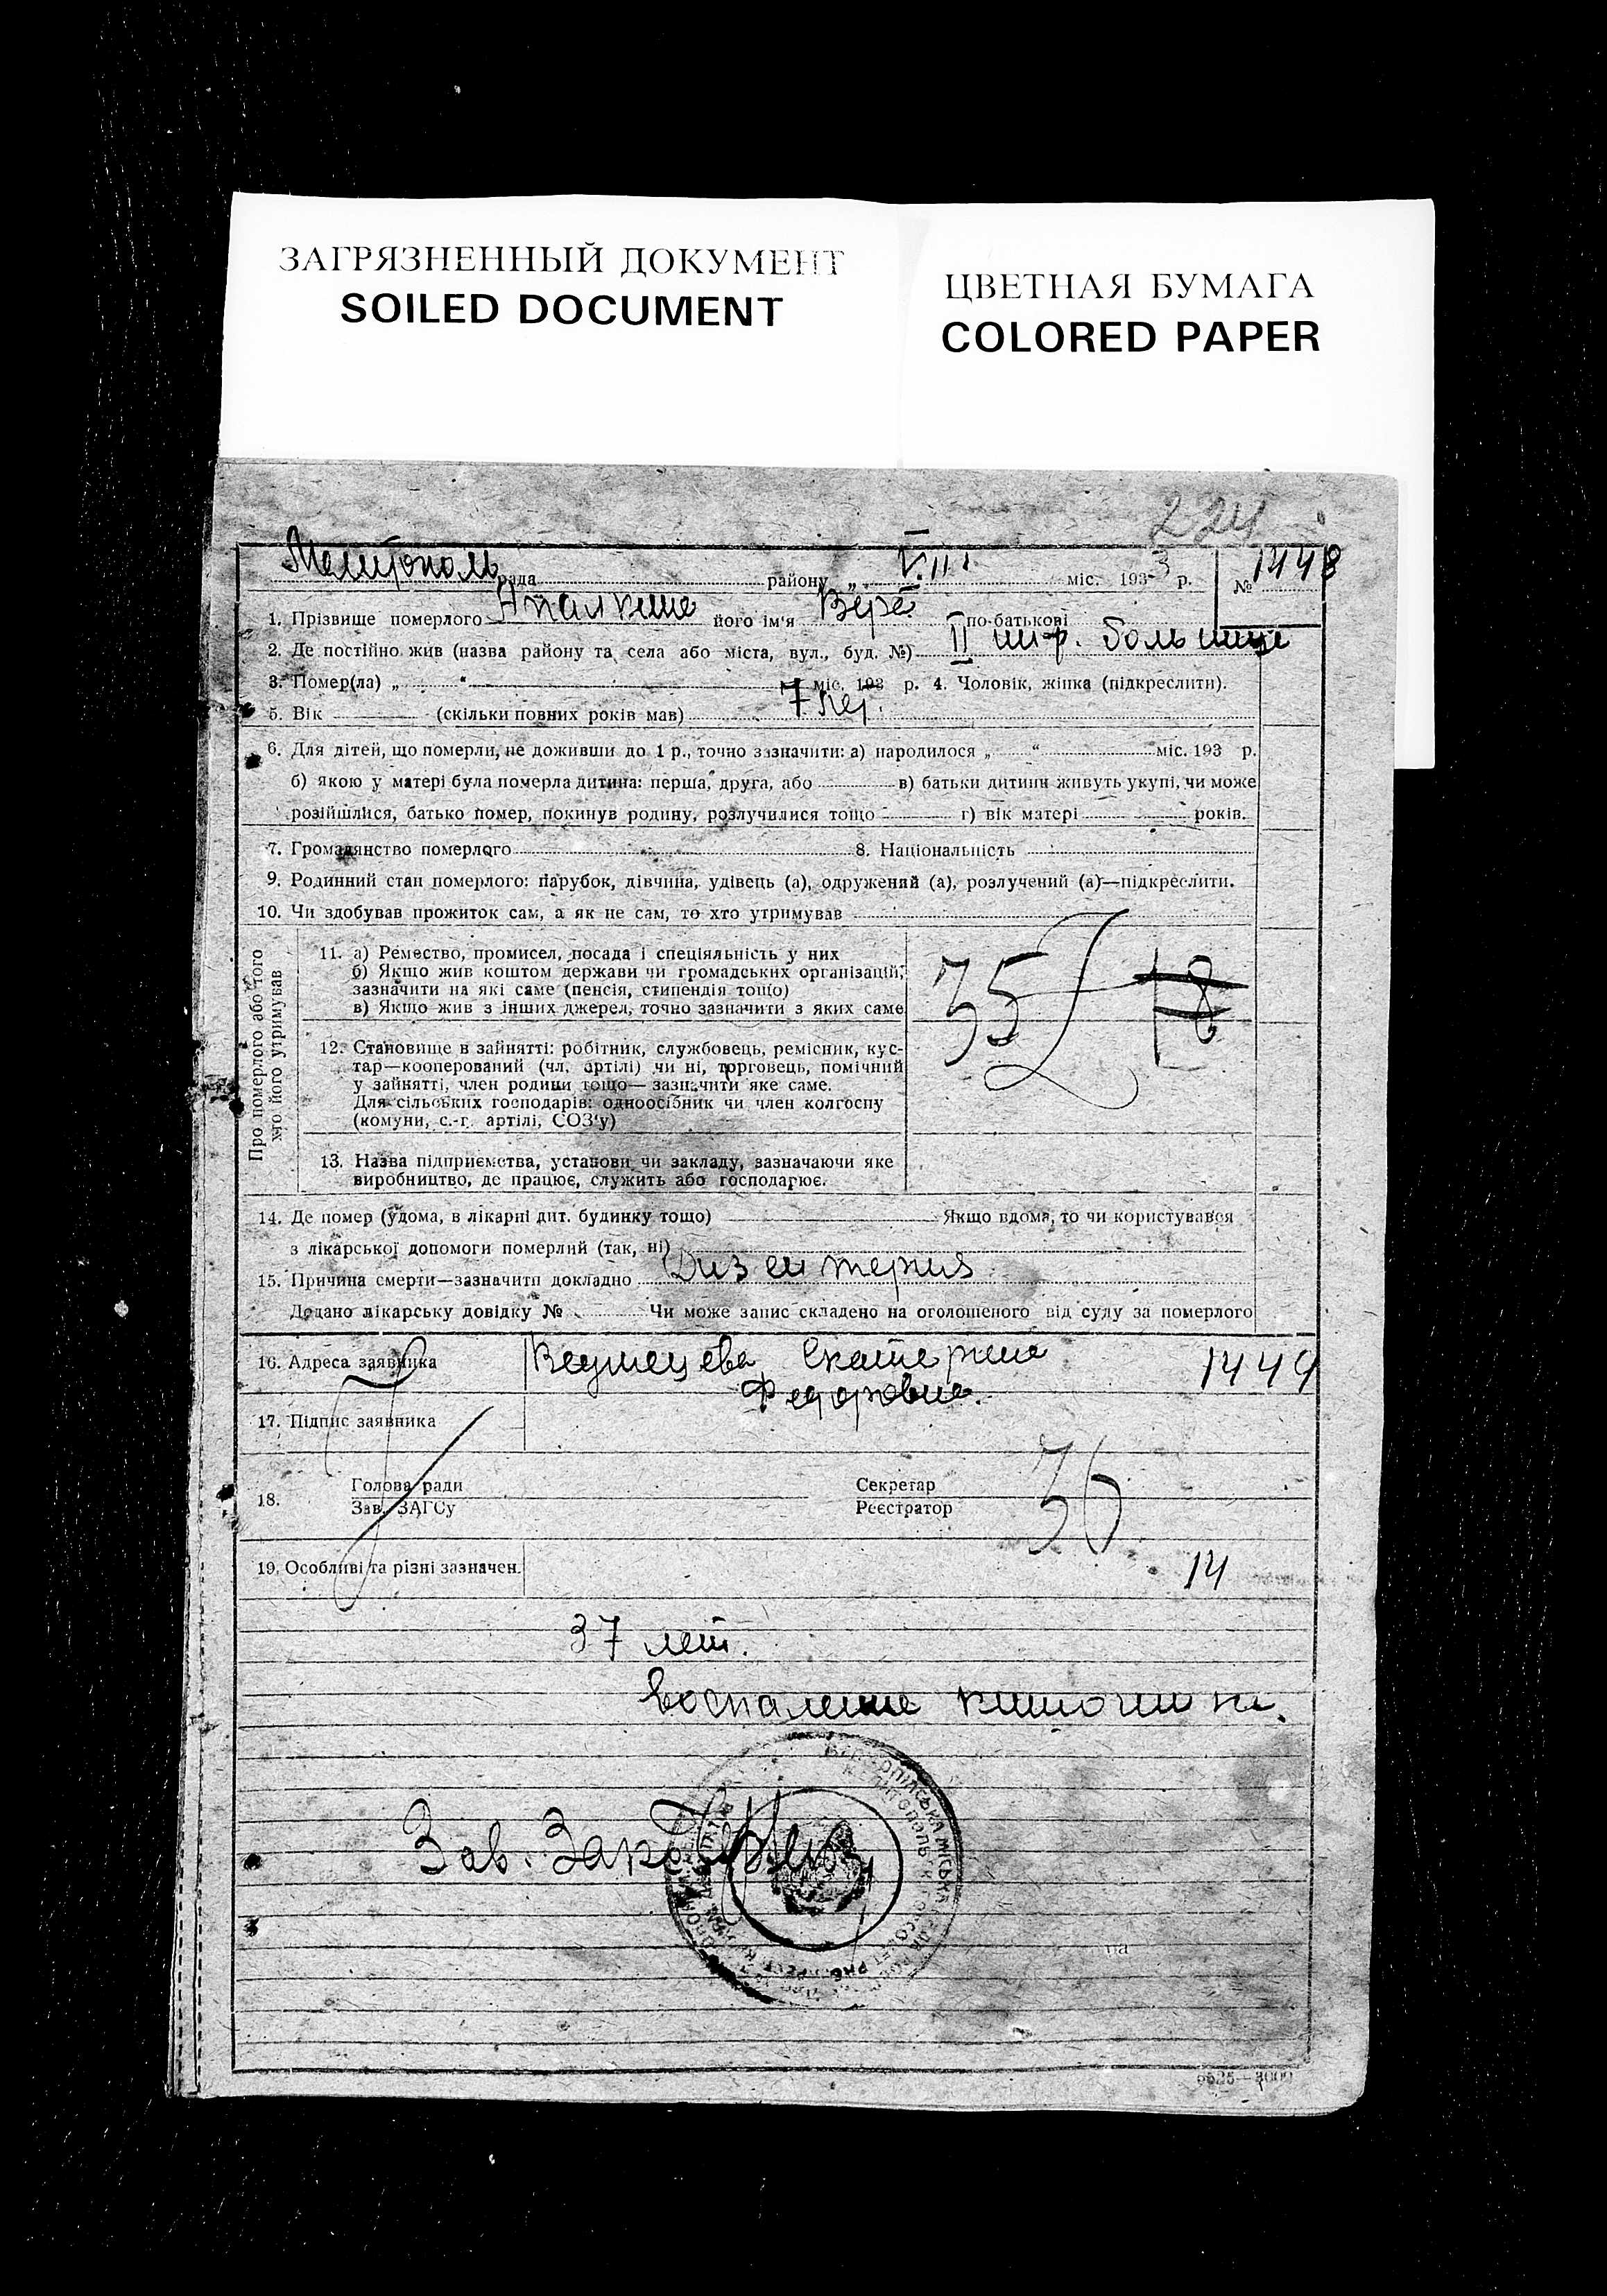 ЗАГРЯЗНЕННЫЙ ДОКУМЕНТ
SOILED DOCUMENT
ЦВЕТНАЯ БУМАГА
COLORED PAPER
224
Мелитополь рада району „ VIII міс. 1933 р. № 1448
1. Прізвище померлого його ім'я Вера по-батькові
2. Де постійно жив (назва району та села або міста, вул., буд. №) II больнице
3. Помер(ла) „ “ міс. 193 р. 4. Чоловік, жінка (підкреслити).
5. Вік (скільки повних років мав) 7 лет.
6. Для дітей, що померли, не доживши до 1 р., точно зазначити: а) народилося „ “ міс. 193 р.
б) якою у матері була померла дитина: перша, друга, або в) батьки дитини живуть укупі, чи може
розійшлися, батько помер, покинув родину, розлучилися тощо г) вік матері років.
7. Громадянство померлого 8. Національність
9. Родинний стан померлого: парубок, дівчина, удівець (а), одружений (а), розлучений (а)—підкреслити.
10. Чи здобував прожиток сам, а як не сам, то хто утримував
Про померлого або того
хто його утримував
11. а) Ремество, промисел, посада і спеціяльність у них
б) Якщо жив коштом держави чи громадських організацій,
зазначити на які саме (пенсія, стипендія тощо)
в) Якщо жив з інших джерел, точно зазначити з яких саме
35 18
12. Становище в зайнятті: робітник, службовець, ремісник, кус-
тар—кооперований (чл. артілі) чи ні, торговець, помічний
у зайнятті, член родини тощо— зазначити яке саме.
Для сільських господарів: одноосібник чи член колгоспу
(комуни, с.-г. артілі, СОЗ'у)
13. Назва підприємства, установи чи закладу, зазначаючи яке
виробництво, де працює, служить або господарює.
14. Де помер (удома, в лікарні дит. будинку тощо) Якщо вдома, то чи користувався
з лікарської допомоги померлий (так, ні)
15. Причина смерти—зазначити докладно Дизентерия
Додано лікарську довідку № Чи може запис складено на оголошеного від суду за померлого
16. Адреса заявника Екатерина 1449
Федоровна.
17. Підпис заявника
18. Голова ради Секретар
Зав. ЗАГСу Реєстратор
36
19. Особливі та різні зазначен.
14
37 лет.
Воспаление
Зав.
5525—3000